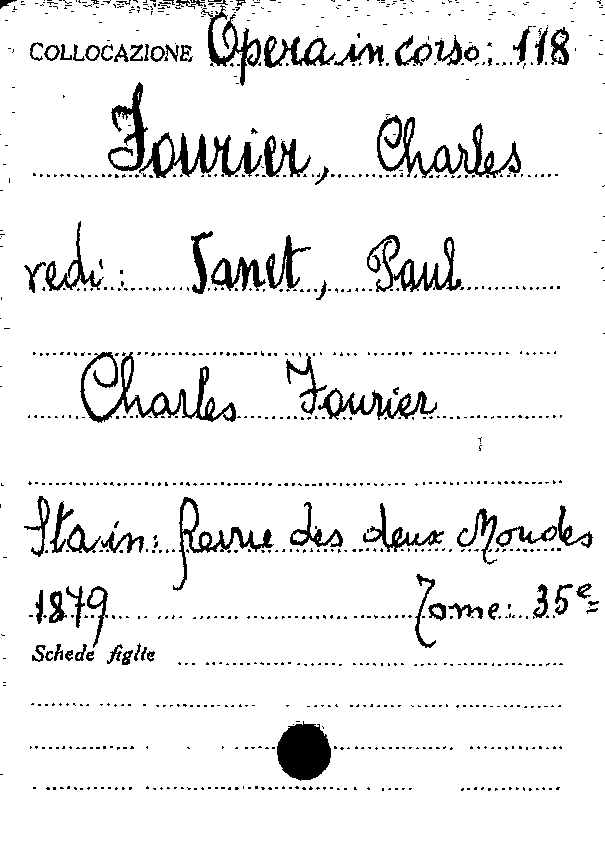 COLLOCAZIONE Opera in corso: 118
Fourier, Charles
vedi: Janet, Paul
Charles Fourier
Sta in: Revue des deux Mondes
1879 Tome: 35e
Schede figlie